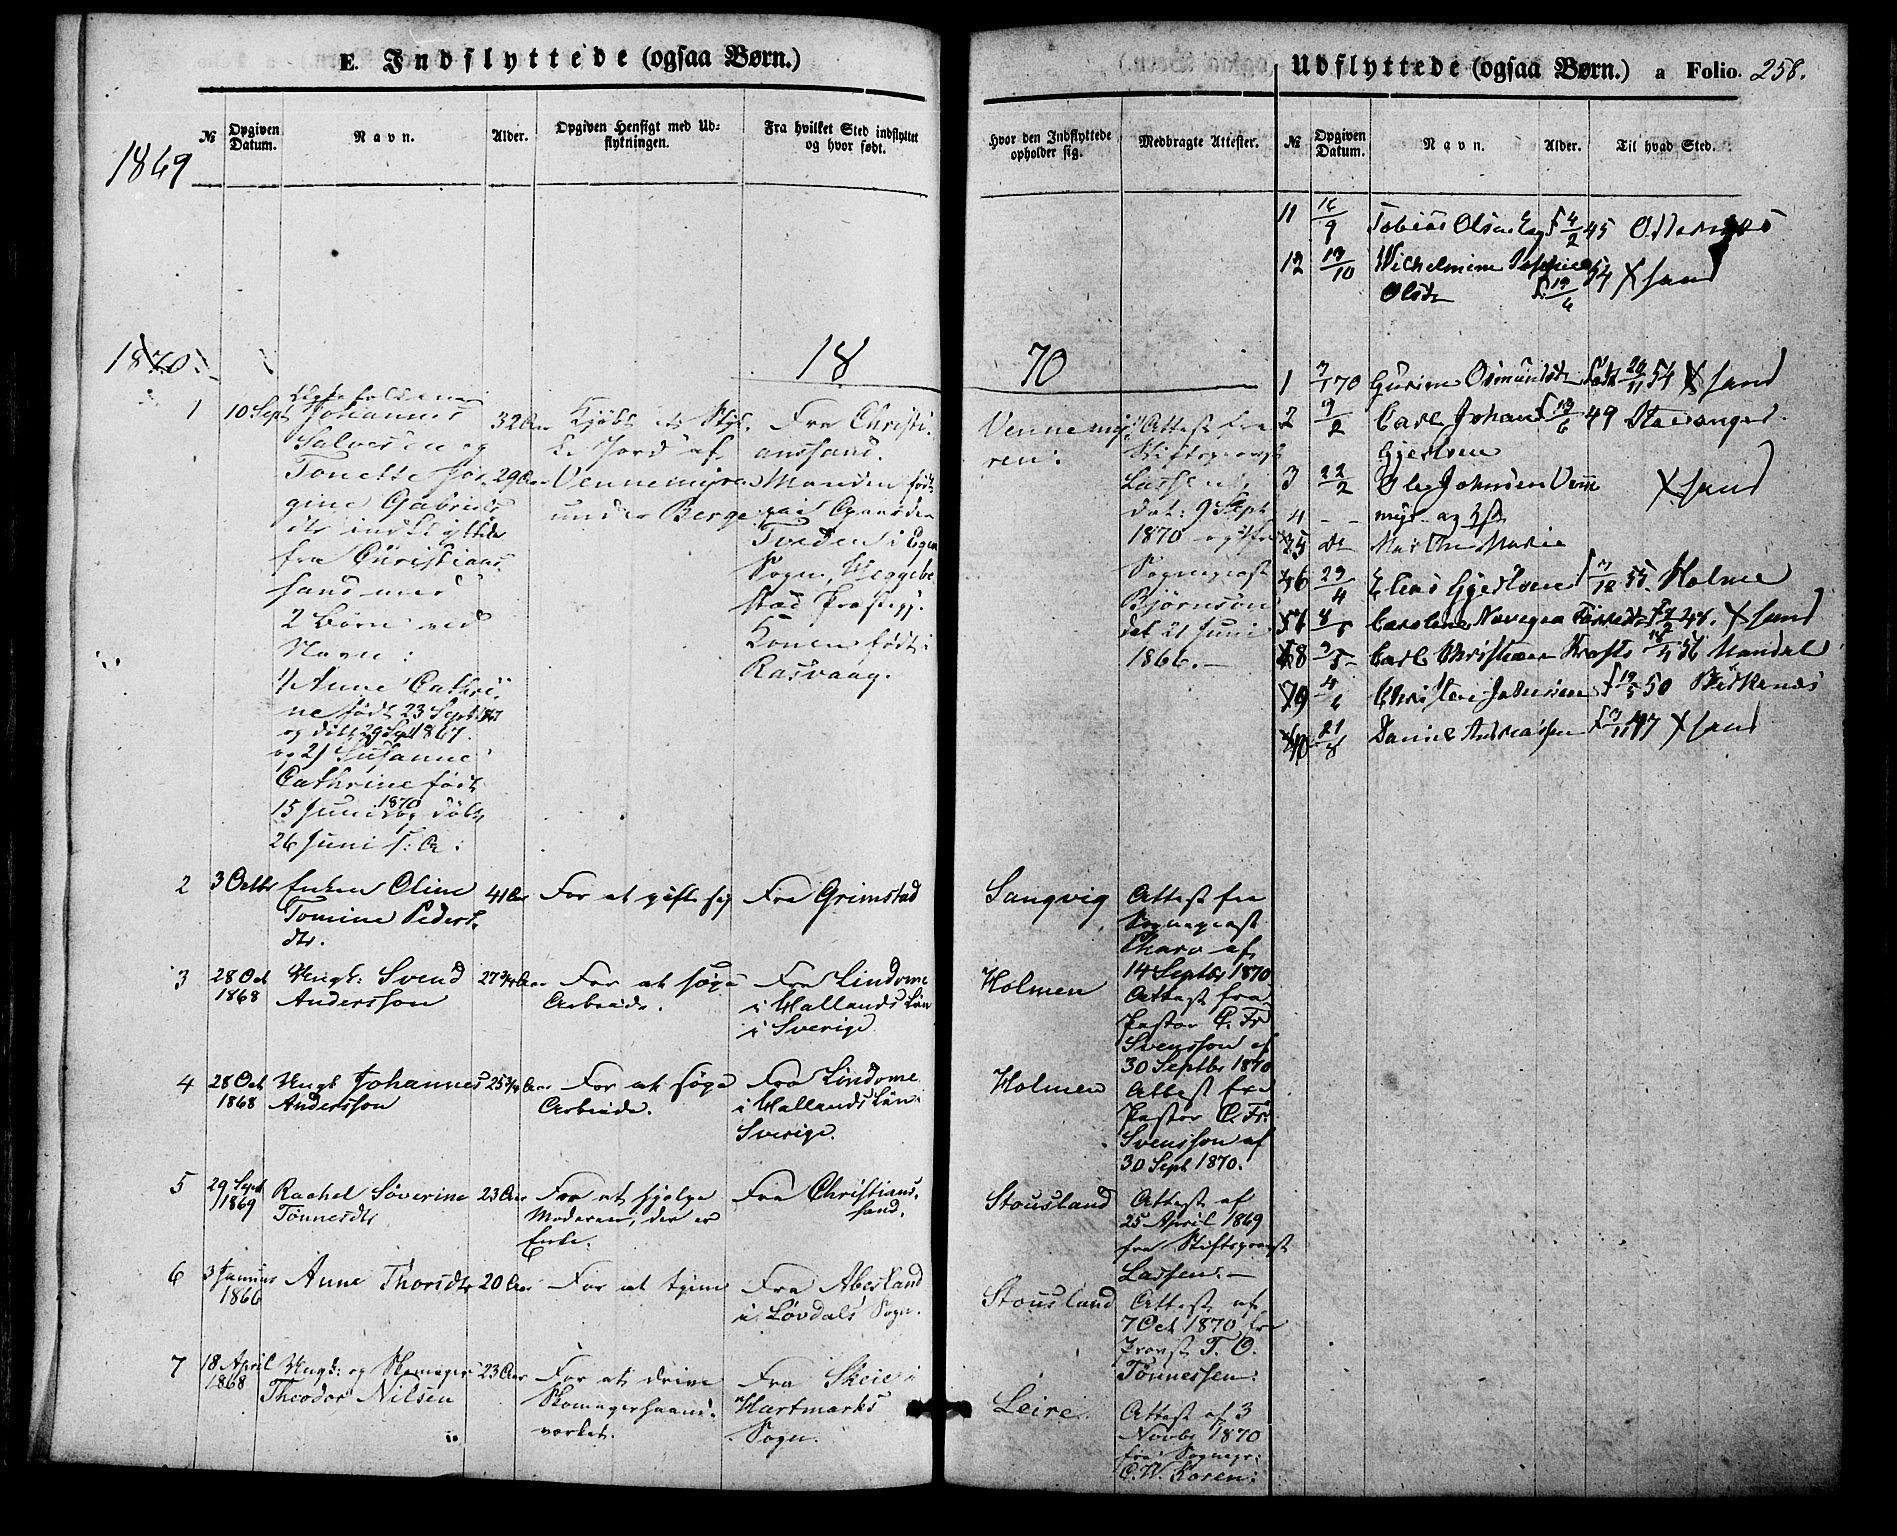 E. Indflyttede (ogsaa Børn.)
№
Opgiven Datum.
Navn.
Alder.
Opgiven Hensigt med Udflytningen.
Fra hvilket Sted indflyttet og hvor født.
1869
1870.
18
1
10 Sept
Johannes
Salvesen og
Tonette Jør
gine Gabriels
dtr indflyttede
fra Christians
sand med
2 Børn ved
Navn:
1/ Anne Cathri
ne født 23 Sept 1867
og døbt 29 Sept 1867.
og 2/ Susanne
Cathrine født
15 Juni 1870 og døbt
26 Juni s: A:
32 Aar
29 Aar
Kjøbt et Styk
ke Jord af
Vennemyren
under Berge
Fra Christi
anssand.
Manden født
paa Gaarden
Tveden i Egen
Sogn, Heggebo
stad Præstegj.
Konen født i
Rasvaag.
2
3 Octbr
Enken Oline
Tomine Peders
dtr.
41 Aar
For at gifte sig
Fra Grimstad
3
28 Oct
1868
Ungk: Svend
Andersson
27 3/4 Aar
For at søge
Arbeide.
Fra Lindome
i Hallands Län
i Sverige
4
28 Oct
1868
Ungk Johannes
Andersson
25 3/4 Aar
For at søge
Arbeide.
Fra Lindome
i Hallands Län i
Sverige.
5
29 Sept
1869
Rachel Søverine
Tønnesdtr
23 Aar
For at hjelpe
Moderen, der er
Enke.
Fra Christians
sand.
6
3 Januar
1866
Anne Thorsdtr
20 Aar
For at tjene
Fra Abesland
i Løvdals Sogn.
7
18 April
1868
Ungk: og Skomager
Theodor Nilsen
23 Aar
For at drive
Skomagerhaand
værket.
Fra Skeie i
Hartmarks
Sogn.
Udflyttede (ogsaa Børn.) a Folio. 258.
Hvor den Indflyttede opholder sig.
Medbragte Attester.
№
Opgiven Datum.
Navn.
Alder.
Til hvad Sted.
70
Vennemy
ren.
Attest fra
Stiftsprovst
Lassen,
dat: 9 Sept
1870 og fra
Sogneprest
Bjørnson
dat 21 Juni
1866.
Sangvig
Attest fra
Sogneprest
af
14 Septbr 1870
Holmen
Attest fra
Pastor C. Fr
Svensson af
30 Septbr 1870
Holmen
Attest fra
Pastor C. Fr.
Svensson af
30 Sept 1870.
Stousland
Attest af
25 April 1869
fra Stiftsprovst
Lassen.
Stousland
Attest af
7 Oct 1870 fra
Provst T. O.
Tønnessen.
Leire
Attest af 3
Novbr 1870
fra Sognepr:
C. W. Koren.
11 16/9 Tobias Olsen f 4/2 45
12 19/10 Wilhelmine 54 Xsand
Olsdtr f. 19/6
1 7/1 70 Gurine Osmundsdtr født 20/11 54 Xsand
2 9/2 Carl Johan f 13/6 49 Stavanger.
Gjertsen
3 22/2 Ole Johnsen Venne Xsand
4 - - myr og
5 do Marthe Marie
6 29/4 Elias Gjertsen f 7/12 55. Holme
7 8/5 Caroline 48. Xsand
8 3/5 Carl Christian 56 Mandal
9 4/6 Christen f 19/5 50 Birkenæs
10 21/8 Daniel Andreassen 47 Xsand